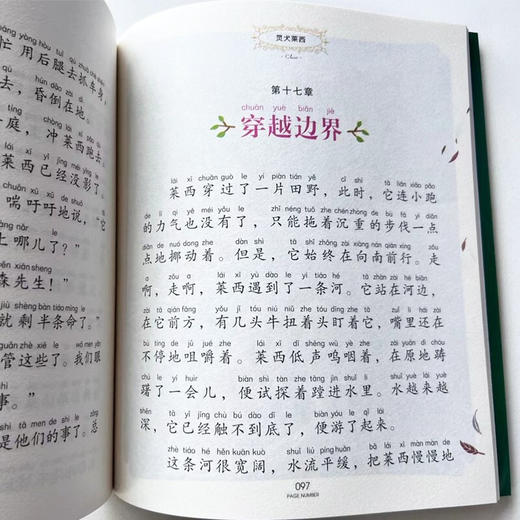 máng yòng hòu tuǐ qù zhuā chē shēn
忙用后腿去抓车身,
qù hūn dǎo zài dì
去,昏倒在地。
tíng chōng lái xī pǎo qù
庭,冲莱西跑去
lái xī yǐ jīng méi yǐng le
莱西已经没影了。
chuǎn xū xū de shuō tā
喘吁吁地说,“它
shàng nǎr le
上哪儿了?”
sēn xiān sheng
森先生!”
jiù shèng bàn tiáo mìng le
就剩半条命了。
管这些了。我们眼
事。”
shì tā men de shì le
是他们的事了。总
灵犬莱西
第十七章
chuān yuè biān jiè
穿越边界
lái xī chuān guò le yí piàn tián yě cǐ shí tā lián xiǎo pǎo
莱西穿过了一片田野,此时,它连小跑
de lì qi yě méi yǒu le zhǐ néng tuō zhe chén zhòng de bù fá yì diǎn
的力气也没有了,只能拖着沉重的步伐一点
diǎn de nuó dòng zhe dàn shì tā shǐ zhōng zài xiàng nán qián xíng zǒu
点地挪动着。但是,它始终在向南前行。走
a zǒu a lái xī yù dào le yì tiáo hé tā zhàn zài hé biān
啊,走啊,莱西遇到了一条河。它站在河边,
zài tā qián fāng yǒu jǐ tóu niú niǔ zhe tóu dīng zhe tā zuǐ li hái zài
在它前方,有几头牛扭着头盯着它,嘴里还在
bù tíng de jǔ jué zhe lái xī dī shēng wū yè zhe zài yuán dì chóu
不停地咀嚼着。莱西低声呜咽着,在原地踌
chú le yí huìr biàn shì tàn zhe tāng jìn shuǐ lǐ shuǐ yuè lái yuè
躇了一会儿,便试探着蹚进水里。水越来越
shēn tā yǐ jīng chù bú dào dǐ le biàn yóu le qǐ lái
深,它已经触不到底了,便游了起来。
zhè tiáo hé hěn kuān kuò shuǐ liú píng huǎn bǎ lái xī màn màn de
这条河很宽阔,水流平缓,把莱西慢慢地
097
PAGE NUMBER